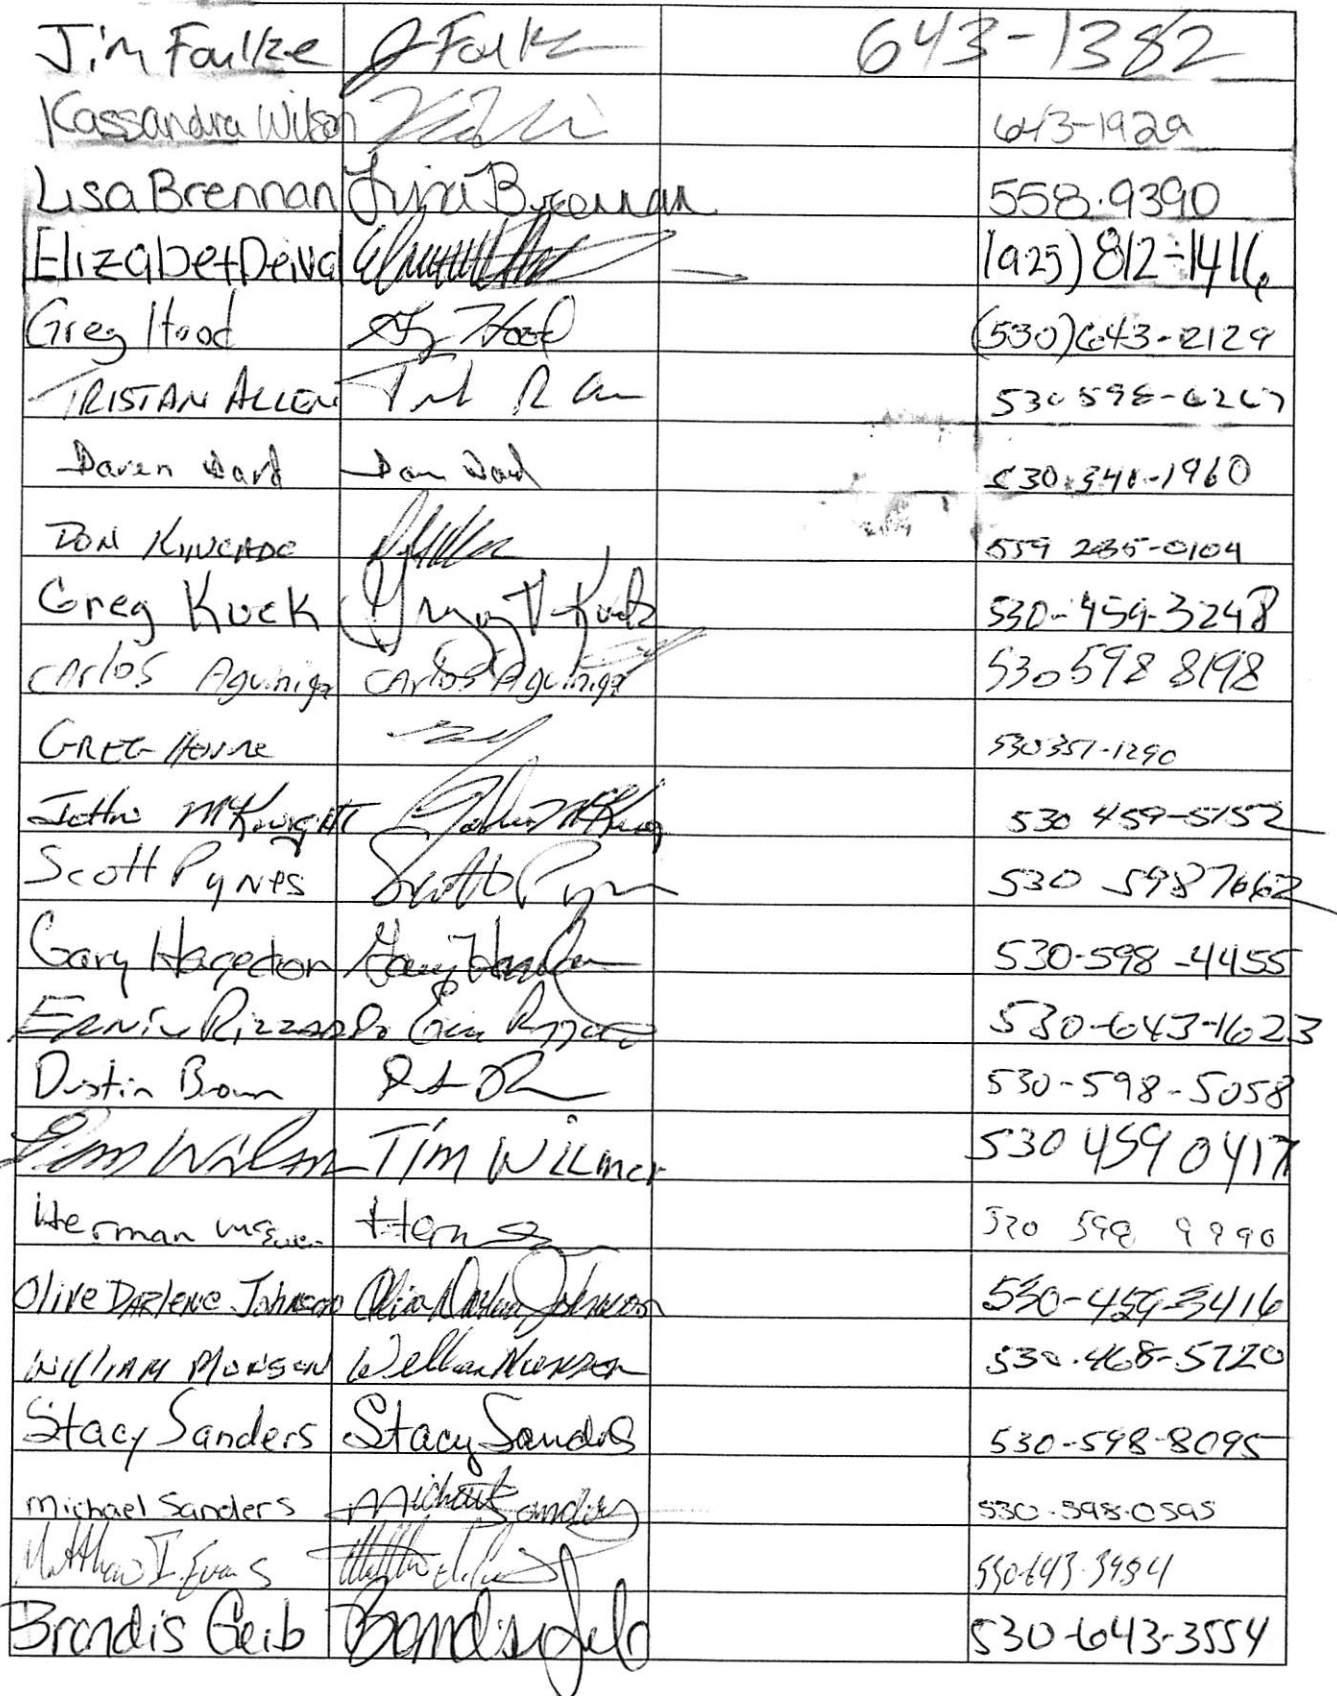 Jim Faulke J Faulk 643-1382
Kassandra Wilson 643-1929
Lisa Brennan Lisa Brennan 558-9390
Elizabet Deiva (925) 812-1416
Greg Hood Greg Hood (530) 643-2129
TRISTAN ALLEN 530 598-6267
Daren Ward Dan Ward 530-340-1960
DON KINCADE 559 235-0104
Greg Kuck 530-459-3248
CArlos Aguiniga CArlos Aguiniga 530 598 8198
GREG 530 351-1290
John McKnight John McKnig 530 459-5152
Scott Pynes Scott Pyn 530 598 7662
Gary Hagedorn Gary 530-598-4455
Ernie Rizzardo 530-643-1623
Dustin Brown 530-598-5058
Tim Wilmer 530 459 0417
Herman 530 598 9990
Olive Darlene Johnson Olive Darlene Johnson 530-459-3416
WILLIAM MONSON William Monson 530-468-5720
Stacy Sanders Stacy Sanders 530-598-8095
Michael Sanders Michael Sanders 530-598-0595
Matthew I. Evans 530-643-3984
Brandis Geib Brandis Geib 530-643-3554